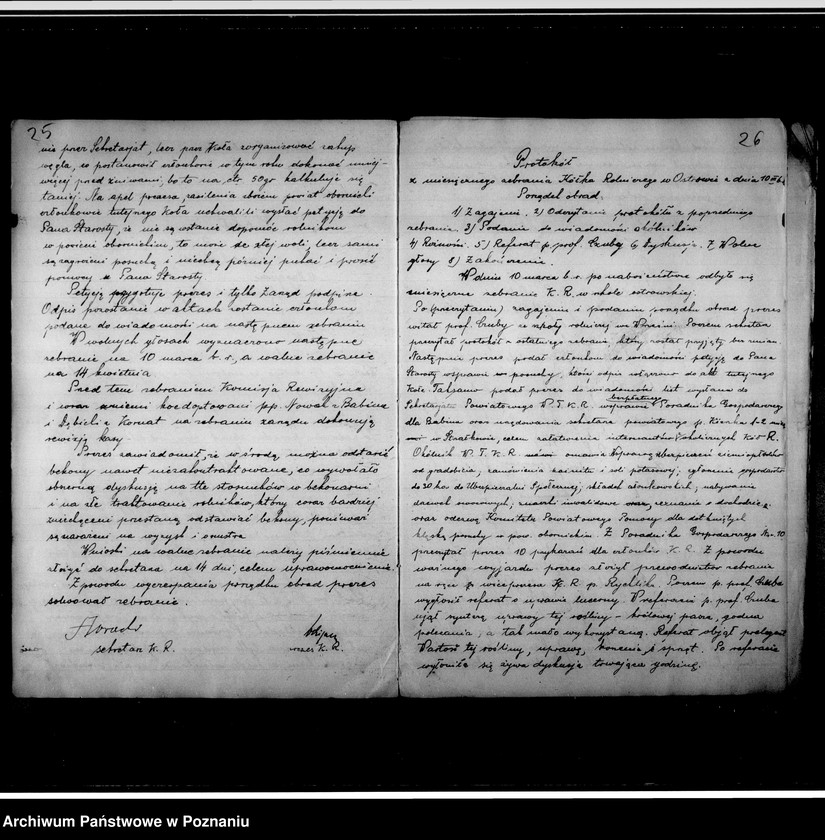 25
nie przez Sekretarjat, lecz przez Koła zorganizować zakup
węgla, co postanowili członkowie w tym roku dokonać mniej-
więcej przed żniwami, bo to na ctr. 50 gr kalkuluje się
taniej. Na apel prezesa, zasilenia zbożem powiat obornicki
członkowie tutejszego Koła uchwalili wysłać petycję do
Pana Starosty, że nie są w stanie dopomóc rolnikom
w powiecie obornickim, to może ze złej woli, lecz sami
są zagrożeni posuchą i niechcą później pukać i prosić
pomocy u Pana Starosty.
Petycję przygotuje prezes i tylko Zarząd podpisze.
Odpis pozostanie w aktach zostanie członkom
podane do wiadomości na następnem zebraniu
W wolnych głosach wyznaczono następne
zebranie na 10 marca b. r. a walne zebranie
na 14 kwietnia
Przed tem zebraniem Komisja Rewizyjna
i coraz kooptowani pp. Nowak z Babina
i Dębicki z Kornat na zebraniu zarządu dokonują
rewizję kasy.
Prezes zawiadomił, że w środę można odstawić
bekony nawet niezakontraktowane, co wywołało
obszerną dyskusję na tle stosunków w bekoniarni
i na złe traktowanie rolników, który coraz bardziej
zniechęceni przestaną odstawiać bekony, ponieważ
są narażeni na wyzysk i
Wnioski na walne zebranie należy piśmiennie
złożyć do sekretarza na 14 dni, celem uprawomocnienia.
Z powodu wyczerpania porządku obrad prezes
solwował zebranie.
sekretarz K. R.
prezes K. R.
26
Protokół
z miesięcznego zebrania Kółka Rolniczego w Ostrowie z dnia 10 III
Porządek obrad.
1) Zagajenie. 2) Odczytanie protokółu z poprzedniego
zebrania. 3) Podanie do wiadomości okólników
4) Różności. 5) Referat p. prof. Cruby 6 Dyskusja. 7 Wolne
głosy 8) Zakończenie.
W dniu 10 marca b. r. po nabożeństwie odbyło się
miesięczne zebranie K. R. w szkole ostrowskiej.
Po (przeczytaniu) zagajeniu i podaniu porządku obrad prezes
witał prof. Cruby ze szkoły rolniczej we Wrześni. Poczem sekretarz
przeczytał protokół z ostatniego zebrania, który został przyjęty bez zmian.
Następnie prezes podał członkom do wiadomości petycję do Pana
Starosty w sprawie posuchy, której odpis dołączono do akt tutejszego
Koła. Taksamo podał prezes do wiadomości list wysłany do
Sekretarjatu Powiatowego W. T. K. R. w sprawie bezpłatnego Poradnika Gospodarczego
dla Babina oraz urzędowania sekretarza powiatowego p. Kierka 1-2 razy
w Strzałkowie, celem załatwienia interesantów okolicznych Kół R.
Okólnik W. T. K. R. omawia sprawę ubezpieczeń ziemiopłodów
od gradobicia; zamówienia kainitu i soli potasowej; zgłoszenie gospodarstw
do 30 ha. do Ubezpieczalni Społecznej; składek członkowskich; nabywanie
drzewek owocowych; zeznanie o dochodzie
oraz odezwę Komitetu Powiatowego Pomocy dla dotkniętych
klęską posuchy w pow. obornickim. Z Poradnika Gospodarczego Nr. 10
przeczytał prezes 10 przykazań dla członków K. R. Z powodu
ważnego wyjazdu prezes złożył przewodnictwo zebrania
na ręce p. wiceprezesa K. R. p. Rychlika. Poczem p. prof. Cruba
wygłosił referat o uprawie lucerny. W referacie p. prof. Cruba
ujął syntezę uprawy tej rośliny - królowej pasz, godna
polecenia, a tak mało wykorzystaną. Referat objął prelegent
Wartość tej rośliny, uprawę, i sprzęt. Po referacie
wyłoniła się żywa dyskusja trwająca godzinę.
Archiwum Państwowe w Poznaniu